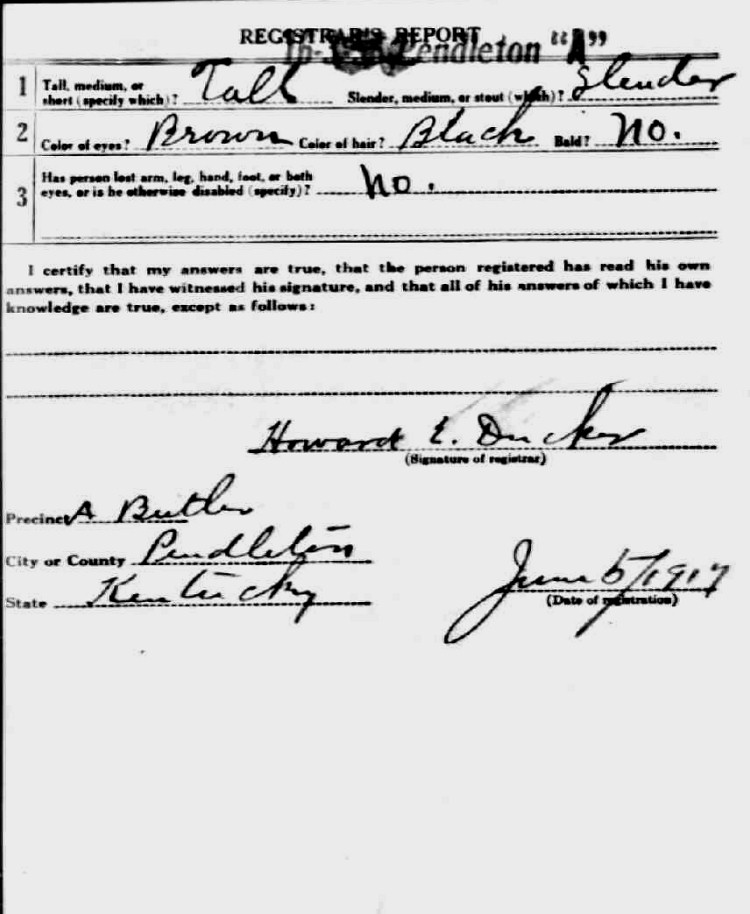 REGISTRAR'S REPORT
Pendleton "A"
1 Tall, medium, or short (specify which)? Tall Slender, medium, or stout (which)? Slender
2 Color of eyes? Brown Color of hair? Black Bald? No.
3 Has person lost arm, leg, hand, foot, or both
eyes, or is he otherwise disabled (specify)? No.
I certify that my answers are true, that the person registered has read his own
answers, that I have witnessed his signature, and that all of his answers of which I have
knowledge are true, except as follows:
Howard E. Ducker
(Signature of registrar)
Precinct A Butler
City or County Pendleton
State Kentucky June 5/1917
(Date of registration)